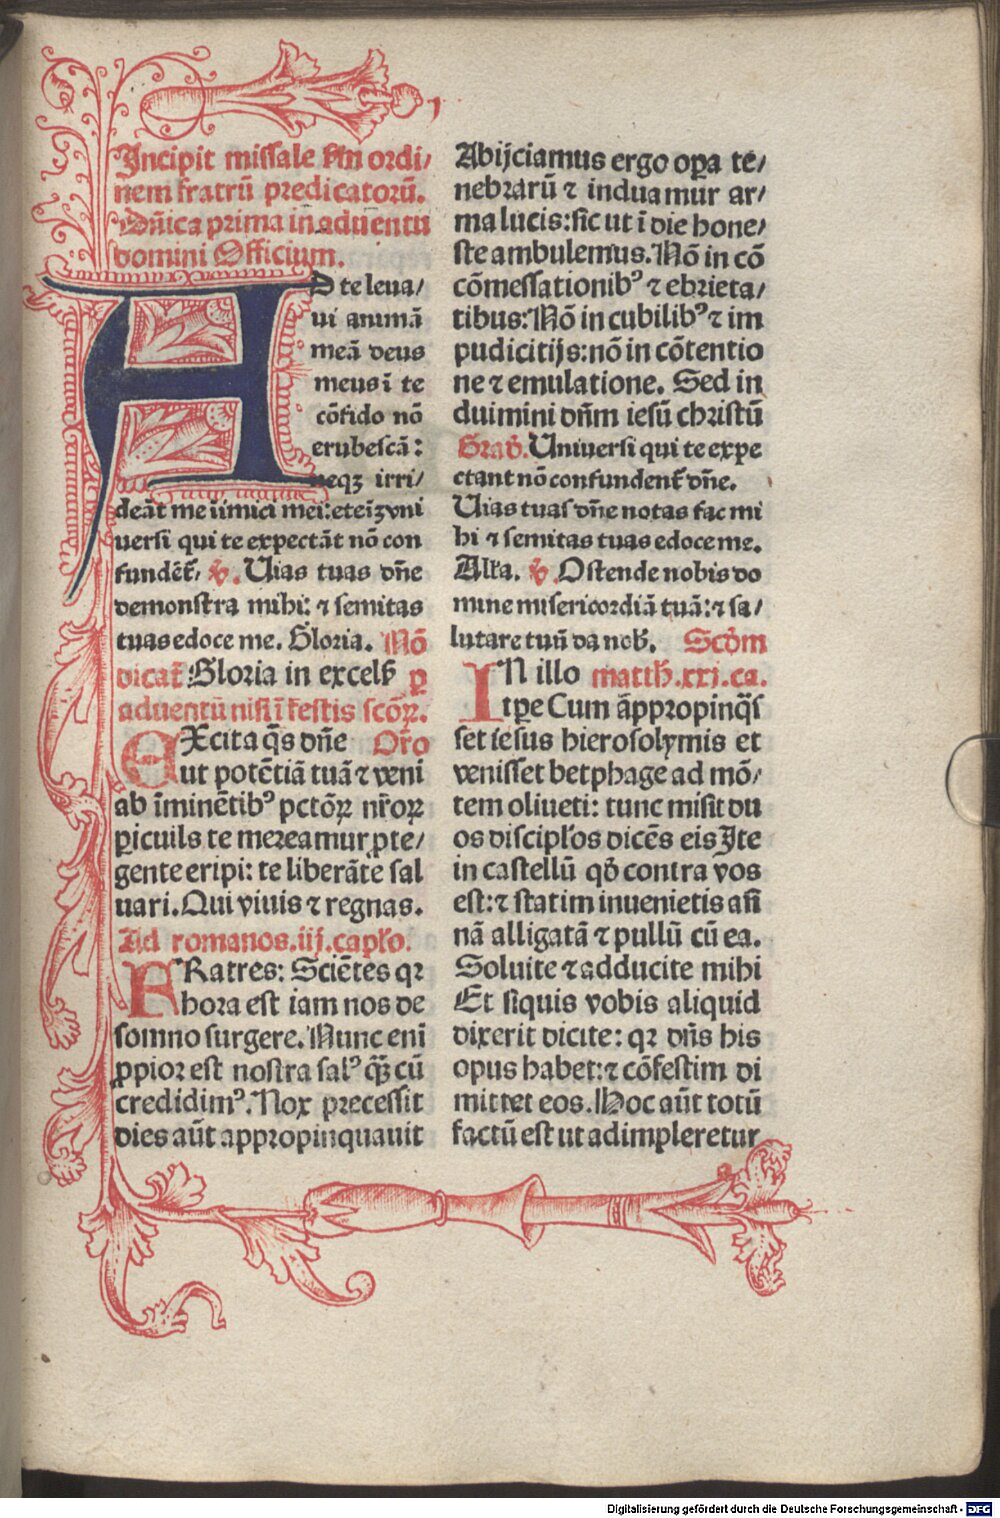 Incipit missale ẜm ordi/
nem fratrū predicatorū.
Dñica prima in aduentu
domini Officium.
AD te leua/
ui animā
meā deus
meus ī te
cōfido nō
erubescā:
neqꝫ irri/
deāt me inimici mei: eteīꝫ vni
uersi qui te expectāt nō con
fundēt̄. ℣. Uias tuas dñe
demonstra mihi: ⁊ semitas
tuas edoce me. Gloria. Nō
dicat̄ Gloria in excels̄ ꝑ
aduentū nisi ī festis scōꝝ.
EXcita q̄s dñe Or̄o
ut potētiā tuā ⁊ veni
ab īminētibꝰ pctōꝝ nr̄oꝝ
ꝑiculis te mereamur ꝓte/
gente eripi: te liberāte sal
uari. Qui viuis ⁊ regnas.
Ad romanos .iij. capło.
FRatres: Sciētes qꝛ
hora est iam nos de
somno surgere. Nunc eni
ꝓpior est nostra salꝰ q̄ꝫ cū
credidimꝰ. Nox precessit
dies aūt appropinquauit
Abijciamus ergo oꝑa te/
nebrarū ⁊ induamur ar/
ma lucis: sic ut ī die hone/
ste ambulemus. Nō in cō
cōmessationibꝰ ⁊ ebrieta/
tibus: Nō in cubilibꝰ ⁊ im
pudicitijs: nō in cōtentio
ne ⁊ emulatione. Sed in
duimini dñm iesū christū
Grad̄. Uniuersi qui te expe
ctant nō confundent̄ dñe.
Uias tuas dñe notas fac mi
hi ⁊ semitas tuas edoce me.
Alľa. ℣. Ostende nobis do
mine misericordiā tuā: ⁊ sa/
lutare tuū da nob̄. Scd̄m
IN illo matth̄. xxi. ca.
tꝑe Cum āppropinq̄s
set iesus hierosolymis et
venisset betphage ad mō/
tem oliueti: tunc misit du
os discipľos dicēs eis Ite
in castellū qd̄ contra vos
est: ⁊ statim inuenietis asi
nā alligatā ⁊ pullū cū ea.
Soluite ⁊ adducite mihi
Et siquis vobis aliquid
dixerit dicite: qꝛ dñs his
opus habet: ⁊ cōfestim di
mittet eos. Hoc aūt totū
factū est ut adimpleretur
Digitalisierung gefördert durch die Deutsche Forschungsgemeinschaft - DFG